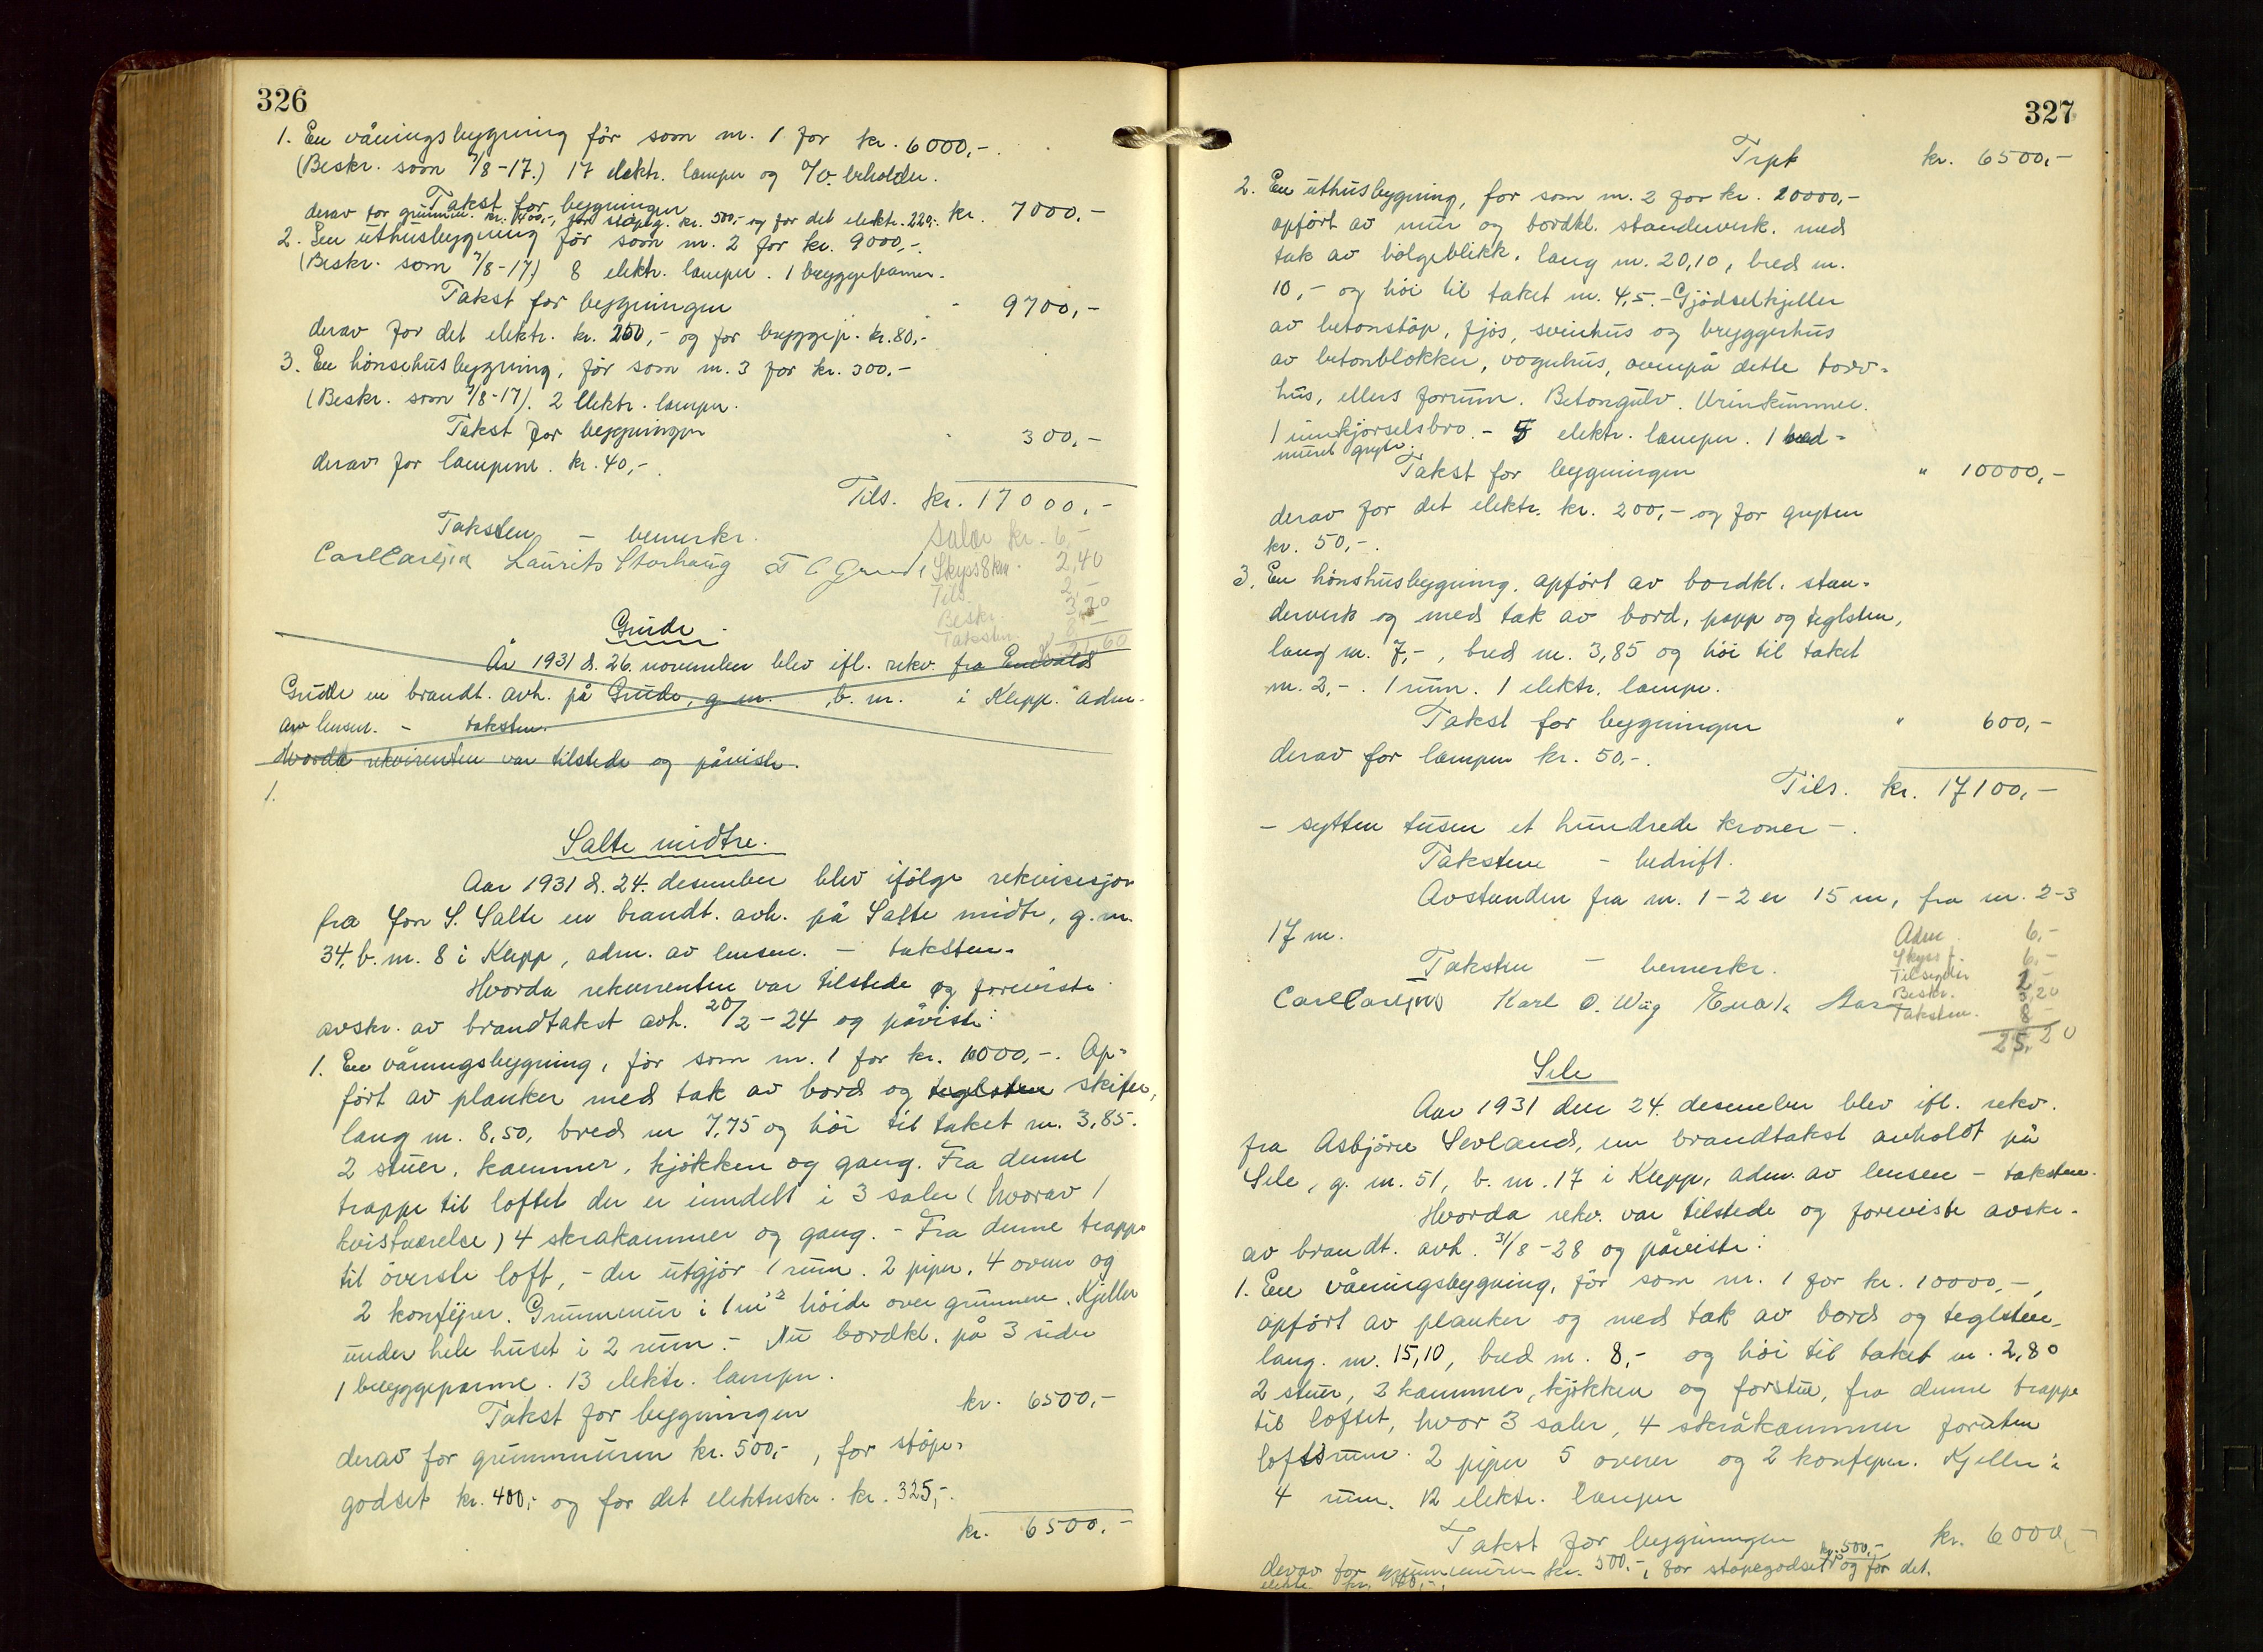 326
1. En våningsbygning før som nr. 1 for kr. 6000,-.
(Beskr. som 7/8-17.) 17 elektr. lamper og 1/v. beholder.
Takst for bygningen kr. 7000,-
derav for grunnm. kr. 400,-, for støpeg. kr. 500,- og for det elektr. 220,-
2. En uthusbygning før som nr. 2 for kr. 9000,-.
(Beskr. som 7/8-17) 8 elektr. lamper. 1 bryggepanne.
Takst for bygningen - 9700,-
derav for det elektr. kr. 200,- og for bryggep. kr. 80,-
3. En hønsehusbygning, før som nr. 3 for kr. 300,-
(Beskr. som 7/8-17). 2 elektr. lamper.
Takst for bygningen - 300,-
derav for lampene. kr. 40,-.
Tils. kr. 17000,-
Taksten – bemerkr.
Carl Carlsen Laurits Storhaug T C Grude
Salær kr. 6,-
Skyss 8 km. 2,40
Tils. 2,-
Beskr. 3,20
Taksten.
Grude.
År 1931 d. 26. november blev ifl. rekv. fra Enevald
Grude en brandt. avh. på Grude, g. nr. , b. nr. i Klepp. adm.
av lensm. - taksten.
Hvorda rekvirenten var tilstede og påviste.
1.
Salte midtre.
Aar 1931 d. 24. desember blev ifölge rekvisisjon
fra Jon S. Salte en brandt. avh. på Salte midtr, g. nr.
34, b. nr. 8 i Klepp, adm. av lensm. – taksten.
Hvorda rekvirenten var tilstede og foreviste
avskr. av brandtakst avh. 20/2-24 og påviste:
1. En våningsbygning, før som nr. 1 for kr. 10000,-. Op-
ført av planker med tak av bord og teglsten skifer,
lang m. 8,50, bred m 7,75 og høi til taket m. 3,85.
2 stuer, kammer, kjøkken og gang. Fra denne
trappe til loftet der er inndelt i 3 saler (hvorav 1
kvistværelse) 4 skråkammer og gang. - Fra denne trappe
til øverste loft, - der utgjør 1 rum. 2 piper, 4 ovner og
2 komfyrer. Grunnmur i 1 m's høide over grunnen. Kjeller
under hele huset i 2 rum. - Nu bordkl. på 3 sider
1 bryggepanne. 13 elektr. lamper.
Takst for bygningen kr. 6500,-
derav for grunnmuren kr. 500,-, for støpe-
godset kr. 400,- og for det elektriske. kr. 325,-.
kr. 6500,-
327
Trpt kr. 6500,-
2. En uthusbygning, før som nr. 2 for kr. 20000,-
opført av mur og bordkl. standerverk. med
tak av bølgeblikk, lang m. 20,10, bred m.
10,- og høi til taket m. 4,5. - Gjødselkjeller
av betonstøp, fjøs, svinhus og bryggerhus
av betonblokker, vognhus, ovenpå dette torv-
hus, ellers forrum. Betongulv. Urinkummer.
1 innkjørselsbro. - 5 elektr. lamper. 1 inn-
muret gryte.
Takst for bygningen " 10000,-
derav for det elektr. kr. 200,- og for gryten
kr. 50,-.
3. En hønshusbygning, opført av bordkl. stan-
derverk og med tak av bord, papp og teglsten,
lang m. 7,-, bred m. 3,85 og høi til taket
m. 2,-. 1 rum. 1 elektr. lampe.
Takst for bygningen " 600,-
derav for lampen kr. 50,-.
Tils. kr. 17100,-
- sytten tusen et hundrede kroner -.
Takstene - bedrift.
Avstanden fra nr. 1-2 er 15 m, fra nr. 2-3
17 m.
Taksten – bemerkr.
Carl Carlsen Karl O. Wiig
Adm. 6,-
Skyss f. 6,-
Tilsigelse 2,-
Beskr. 3,20
Taksten. 8,-
25,20
Sele
Aar 1931 den 24. desember blev ifl. rekv.
fra Asbjørn Sevland, en brandtakst avholdt på
Sele, g. nr. 51, b. nr. 17 i Klepp, adm. av lensm – taksten.
Hvorda rekv. var tilstede og foreviste avskr.
av brandt. avh. 31/8-28 og påviste:
1. En våningsbygning, før som nr. 1 for kr. 10000,-,
opført av planker og med tak av bord og teglsten,
lang. m. 15,10, bred m. 8,- og høi til taket m. 2,80
2 stuer, 2 kammer, kjøkken og forstue, fra denne trappe
til loftet, hvor 3 saler, 4 skråkammer foruten
loftsrum. 2 piper 5 ovner og 2 komfyrer. Kjeller i
4 rum. 12 elektr. lamper
Takst for bygningen kr. 6000,-
derav for grunnmuren kr. 500,-, for støpegodset kr. 500,- og for det.
elektr. kr.